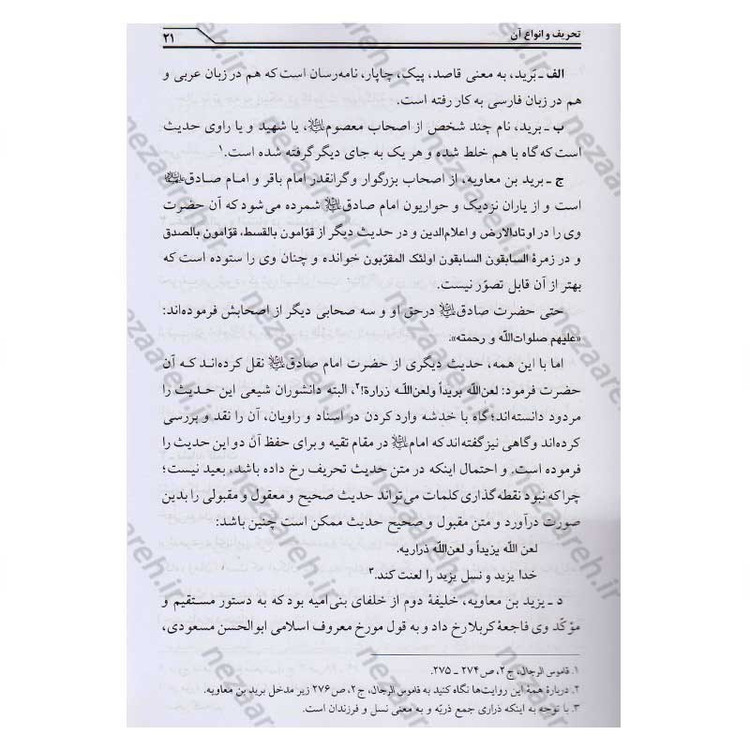 تحریف و انواع آن
۲۱
الف ـ بَرید، به معنی قاصد، پیک، چاپار، نامه‌رسان است که هم در زبان عربی و
هم در زبان فارسی به کار رفته است.
ب ـ برید، نام چند شخص از اصحاب معصوم، یا شهید و یا راوی حدیث
است که گاه با هم خلط شده و هر یک به جای دیگر گرفته شده است.۱
ج ـ برید بن معاویه، از اصحاب بزرگوار و گرانقدر امام باقر و امام صادق
است و از یاران نزدیک و حواریون امام صادق شمرده می‌شود که آن حضرت
وی را در اوتادالارض و اعلام‌الدین و در حدیث دیگر از قوّامون بالقسط، قوّامون بالصدق
و در زمرهٔ السابقون السابقون اولئک المقرّبون خوانده و چنان وی را ستوده است که
بهتر از آن قابل تصوّر نیست.
حتی حضرت صادق درحق او و سه صحابی دیگر از اصحابش فرموده‌اند:
«علیهم صلوات‌اللّه و رحمته».
اما با این همه، حدیث دیگری از حضرت امام صادق نقل کرده‌اند که آن
حضرت فرمود: لعن‌اللّه بریداً ولعن‌اللّه زرارة!۲، البته دانشوران شیعی این حدیث را
مردود دانسته‌اند؛ گاه با خدشه وارد کردن در اسناد و راویان، آن را نقد و بررسی
کرده‌اند وگاهی نیز گفته‌اند که امام در مقام تقیه و برای حفظ آن دو این حدیث را
فرموده است. و احتمال اینکه در متن حدیث تحریف رخ داده باشد، بعید نیست؛
چرا که نبود نقطه‌گذاری کلمات می‌تواند حدیث صحیح و معقول و مقبولی را بدین
صورت درآورد و متن مقبول و صحیح حدیث ممکن است چنین باشد:
لعن اللّه یزیداً و لعن‌اللّه ذراریه.
خدا یزید و نسل یزید را لعنت کند.۳
د ـ یزید بن معاویه، خلیفهٔ دوم از خلفای بنی‌امیه بود که به دستور مستقیم و
مؤکّد وی فاجعهٔ کربلا رخ داد و به قول مورخ معروف اسلامی ابوالحسن مسعودی،
۱. قاموس الرجال، ج ۲، ص ۲۷۴ ـ ۲۷۵.
۲. دربارهٔ همهٔ این روایت‌ها نگاه کنید به قاموس الرجال، ج ۲، ص ۲۷۶ زیر مدخل برید بن معاویه.
۳. با توجه به اینکه ذراری جمع ذریّه و به معنی نسل و فرزندان است.
nezaareh.ir